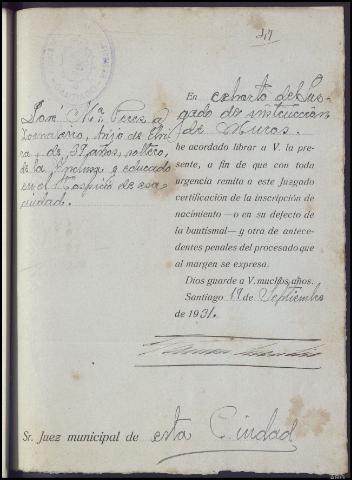 En exhorto del Juz-
gado de instrucción
de Muros.
José Mª. Perez
Jornalero, hijo de
de 39 años, soltero,
de la y educado
en el Hospicio de esa
ciudad.
he acordado librar a V. la pre-
sente, a fin de que con toda
urgencia remita a este Juzgado
certificación de la inscripción de
nacimiento—o en su defecto de
la bautismal—y otra de antece-
dentes penales del procesado que
al margen se expresa.
Dios guarde a V. muchos años.
Santiago 19 de Septiembre
de 1931.
Sr. Juez municipal de esta Ciudad